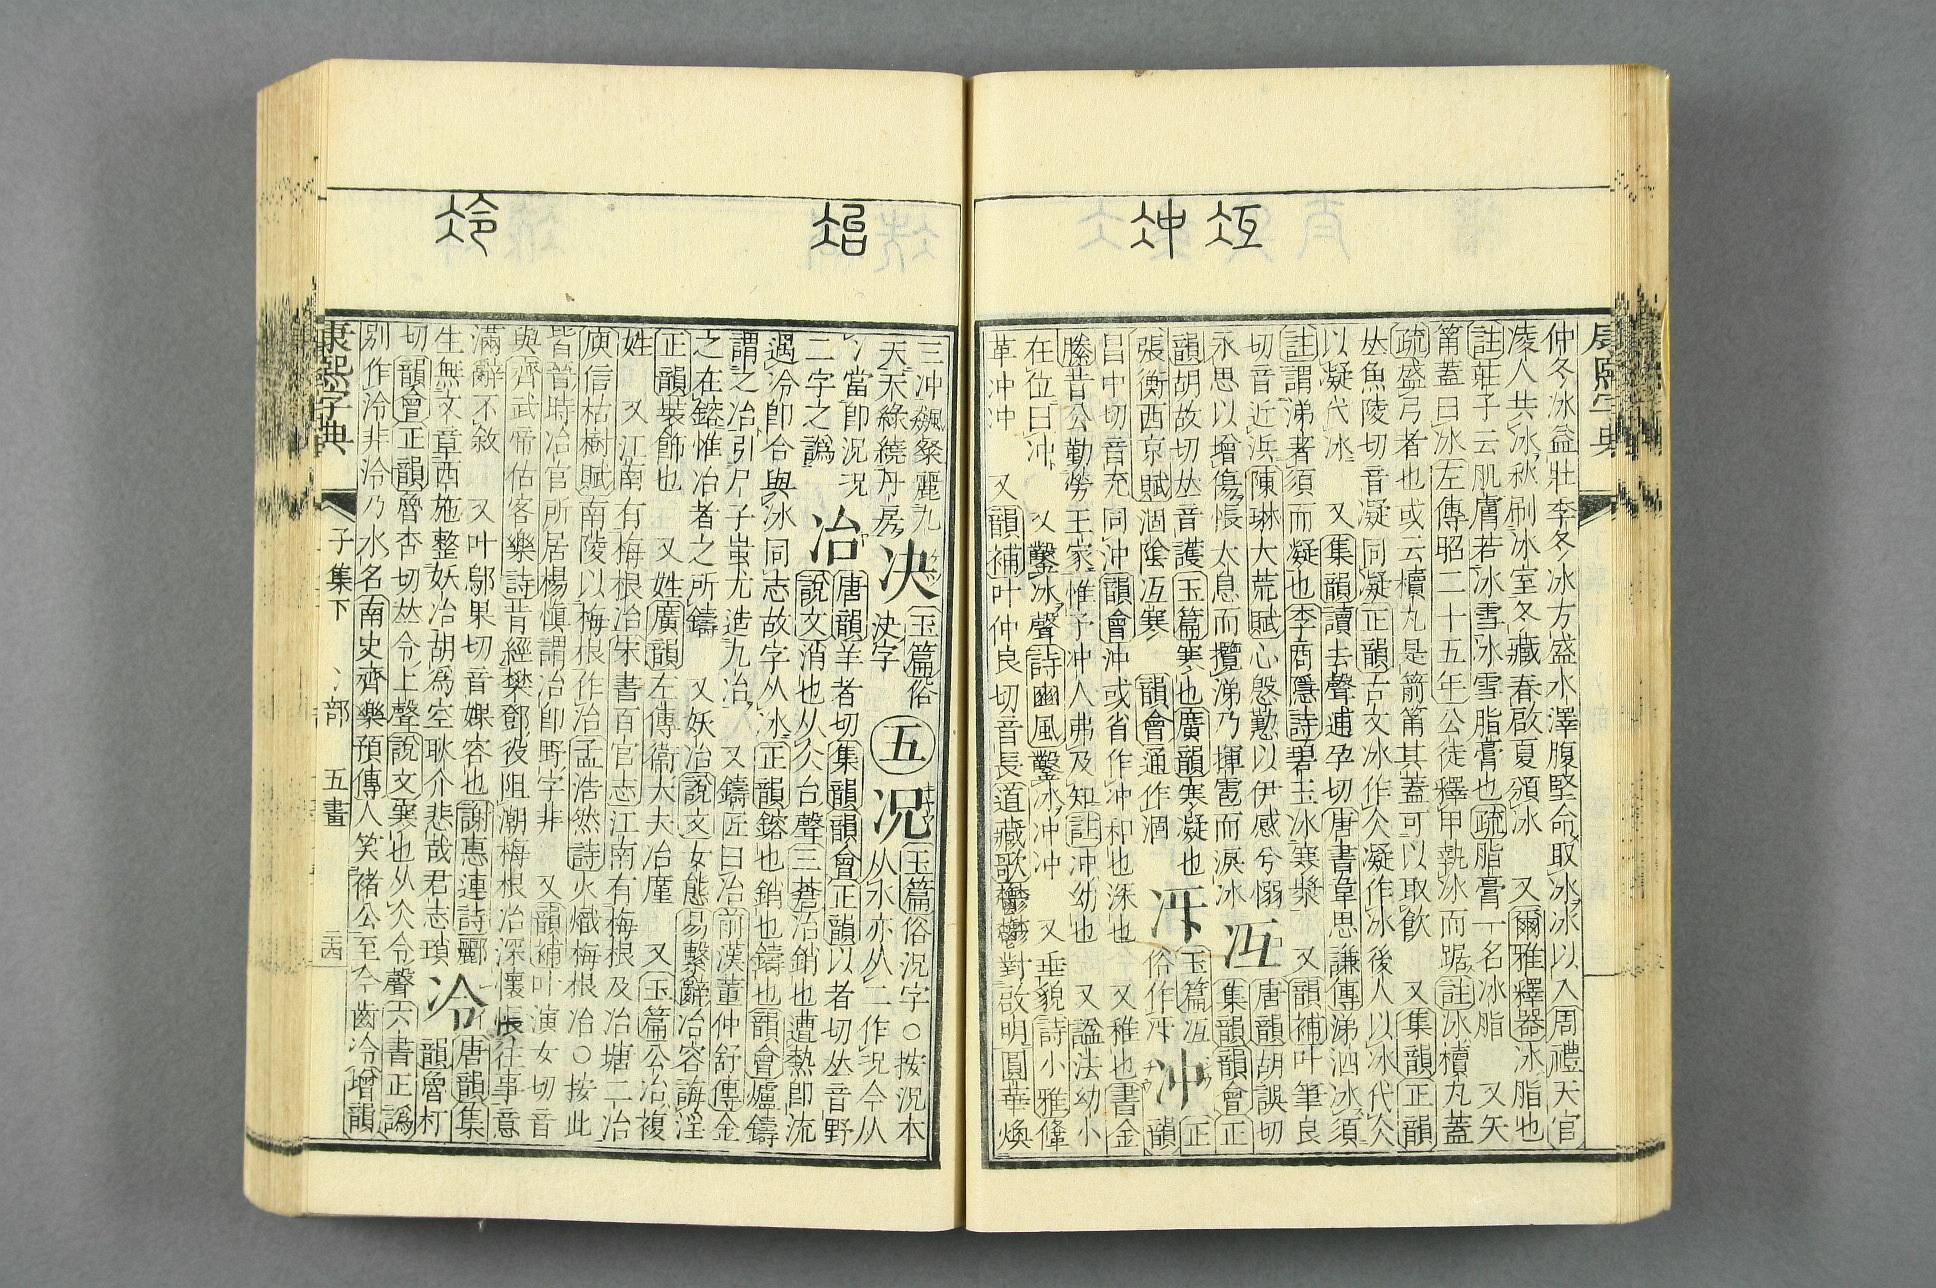 康熙字典
冱
冲
仲冬冰益壯季冬冰方盛水澤腹堅命取冰冰以入周禮天官
凌人共冰秋刷冰室冬藏春啟夏頒冰 又爾雅釋器冰脂也
註莊子云肌膚若冰雪冰雪脂膏也疏脂膏一名冰脂 又矢
筩蓋曰冰左傳昭二十五年公徒釋甲執冰而踞註冰櫝丸蓋
疏盛弓者也或云櫝丸是箭筩其蓋可以取飲 又集韻正韻
𠀤魚陵切音凝同凝正韻古文冰作仌凝作冰後人以冰代仌
以凝代冰 又集韻讀去聲逋孕切唐書韋思謙傳涕泗冰須
註謂涕著須而凝也李商隱詩碧玉冰寒漿 又韻補叶筆良
切音近浜陳琳大荒賦心慇懃以伊感兮慍
永思以增傷悵太息而攬涕乃揮雹而淚冰
冱
唐韻胡誤切
集韻韻會正
韻胡故切𠀤音護玉篇寒也廣韻寒凝也
張衡西京賦涸陰冱寒 韻會通作涸
冴
玉篇冱
俗作冴
冲
正
韻
昌中切音充同沖韻會沖或省作冲和也深也 又稚也書金
縢昔公勤勞王家惟予冲人弗及知註冲幼也 又謚法幼小
在位曰冲 又鑿冰聲詩豳風鑿冰冲冲 又垂貌詩小雅鞗
革冲冲 又韻補叶仲良切音長道藏歌鬱鬱對啟明圓華煥
冶
冷
三冲飆粲麗九
天天綠繞丹房
决
玉篇俗
決字
五
况
玉篇俗況字○按況本
从水亦从二作况今从
冫當卽况況
二字之譌
冶
唐韻羊者切集韻韻會正韻以者切𠀤音野
說文消也从仌台聲三蒼冶銷也遭熱卽流
遇冷卽合與冰同志故字从冰正韻鎔也銷也鑄也韻會爐鑄
謂之冶引尸子蚩尤造九冶 又鑄匠曰冶前漢董仲舒傳金
之在鎔惟冶者之所鑄 又妖冶說文女態易繫辭冶容誨淫
正韻裝飾也 又姓廣韻左傳衞大夫冶廑 又玉篇公冶複
姓 又江南有梅根冶宋書百官志江南有梅根及冶塘二冶
庾信枯樹賦南陵以梅根作冶孟浩然詩火熾梅根冶○按此
皆晉時冶官所居楊愼謂冶卽野字非 又韻補叶演女切音
與齊武帝估客樂詩昔經樊鄧役阻潮梅根冶深懷悵往事意
滿辭不敘 又叶鄔果切音婐容也謝惠連詩酈
生無文章西施整妖冶胡爲空耿介悲哉君志瑣
冷
唐韻集
韻魯打
切韻會正韻魯杏切𠀤令上聲說文寒也从仌令聲六書正譌
別作泠非泠乃水名南史齊樂預傳人笑褚公至今齒冷增韻
康熙字典 子集下 冫部 五畫